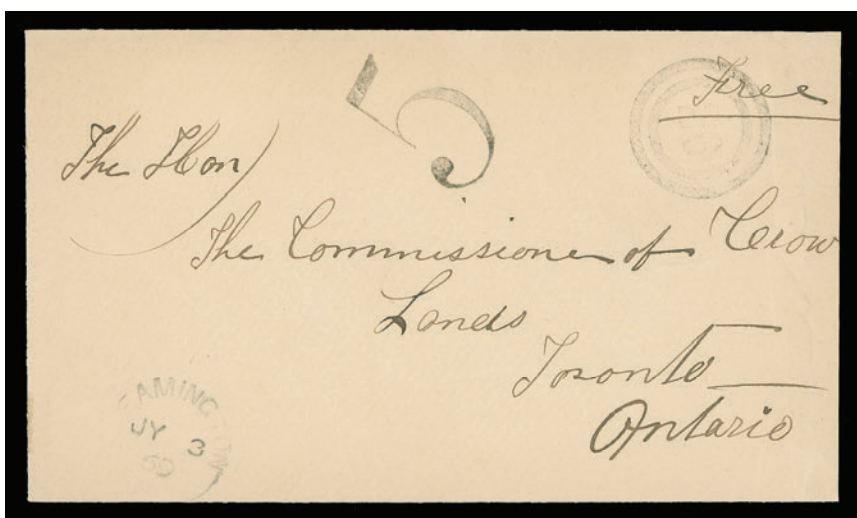 Free
5
The Hon
The Commissioner of Crow
Lands
Toronto
Ontario
AMING
JY 3